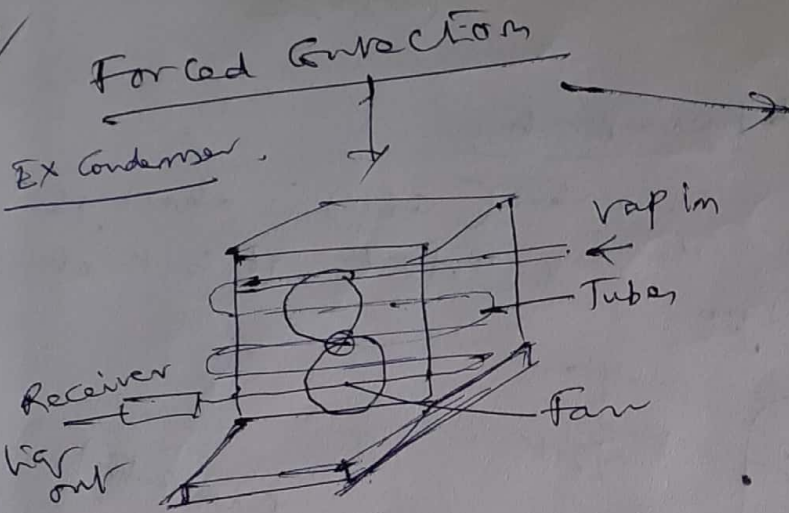 Forced Convection
EX Condenser.
vap in
Tubes
Receiver
Fan
liqr out